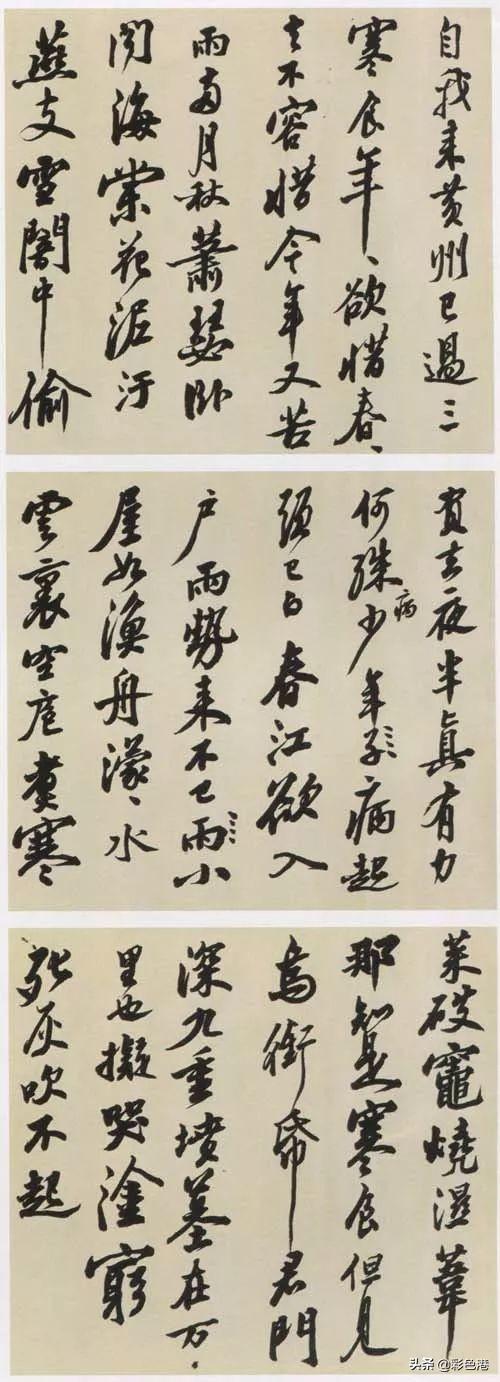 自我来黄州已過三
寒食年、欲惜春、
去不容惜今年又苦
雨兩月秋蕭瑟卧
聞海棠花泥汙
燕支雪闇中偷
負去夜半真有力
何殊病少年子病起
頭已白春江欲入
户雨勢来不已雨小
屋如漁舟濛、水
雲裏空庖煑寒
菜破竈燒濕葦
那知是寒食但見
烏銜帋君門
深九重墳墓在万、
里也擬哭塗窮
死灰吹不起
头条 @彩色港